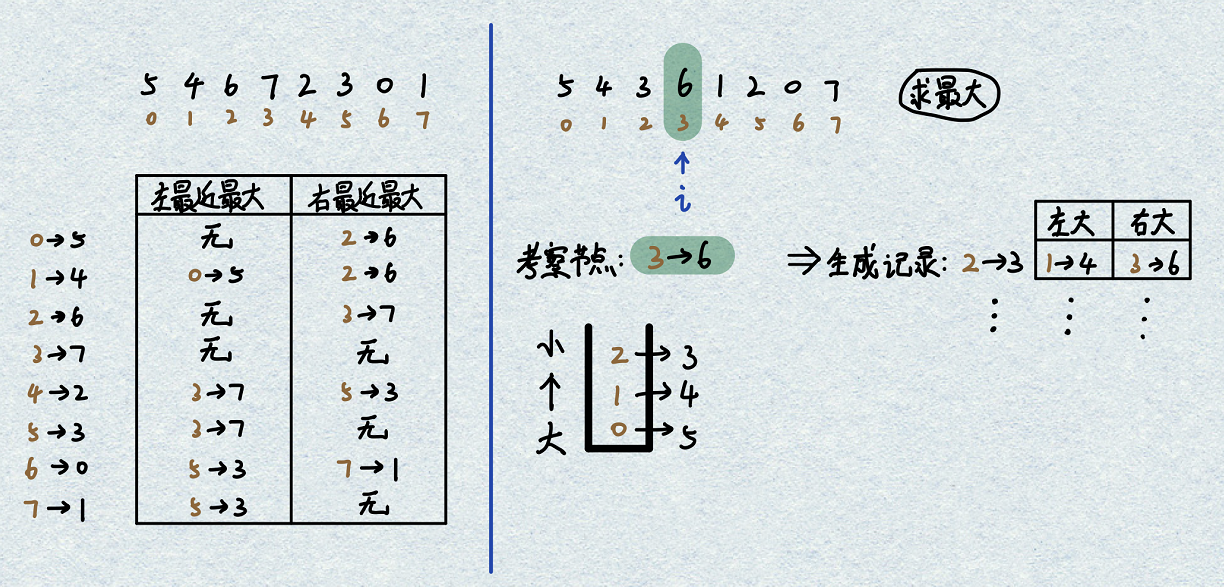 5 4 6 7 2 3 0 1
0 1 2 3 4 5 6 7
左最近最大 右最近最大
0→5 无 2→6
1→4 0→5 2→6
2→6 无 3→7
3→7 无 无
4→2 3→7 5→3
5→3 3→7 无
6→0 5→3 7→1
7→1 5→3 无
5 4 3 6 1 2 0 7
0 1 2 3 4 5 6 7
求最大
↑
i
考察节点: 3→6
⇒生成记录: 2→3
左大 右大
1→4 3→6
⋮ ⋮ ⋮
小
↑
大
2→3
1→4
0→5